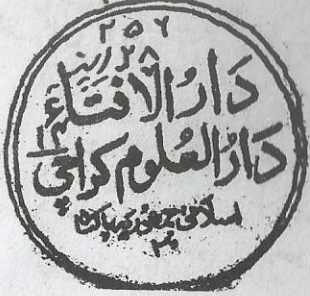 ۲۵۶
دَارُ الْاِفتَاء
دَارُ العُلوم کراچی
اسلامی جمہوریہ پاکستان